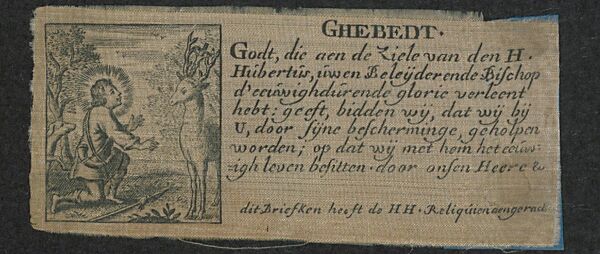 GHEBEDT.
Godt, die aen de Ziele van den H.
Hubertus, uwen Beleyderende Bischop
d'eeuwighdurende glorie verleent
hebt; geeft, bidden wij, dat wij bij
U, door sijne bescherminge, geholpen
worden; op dat wij met hem het eeuw-
igh leven besitten. door onsen Heere &
dit Briefken heeft de HH. Reliquien aengeraek